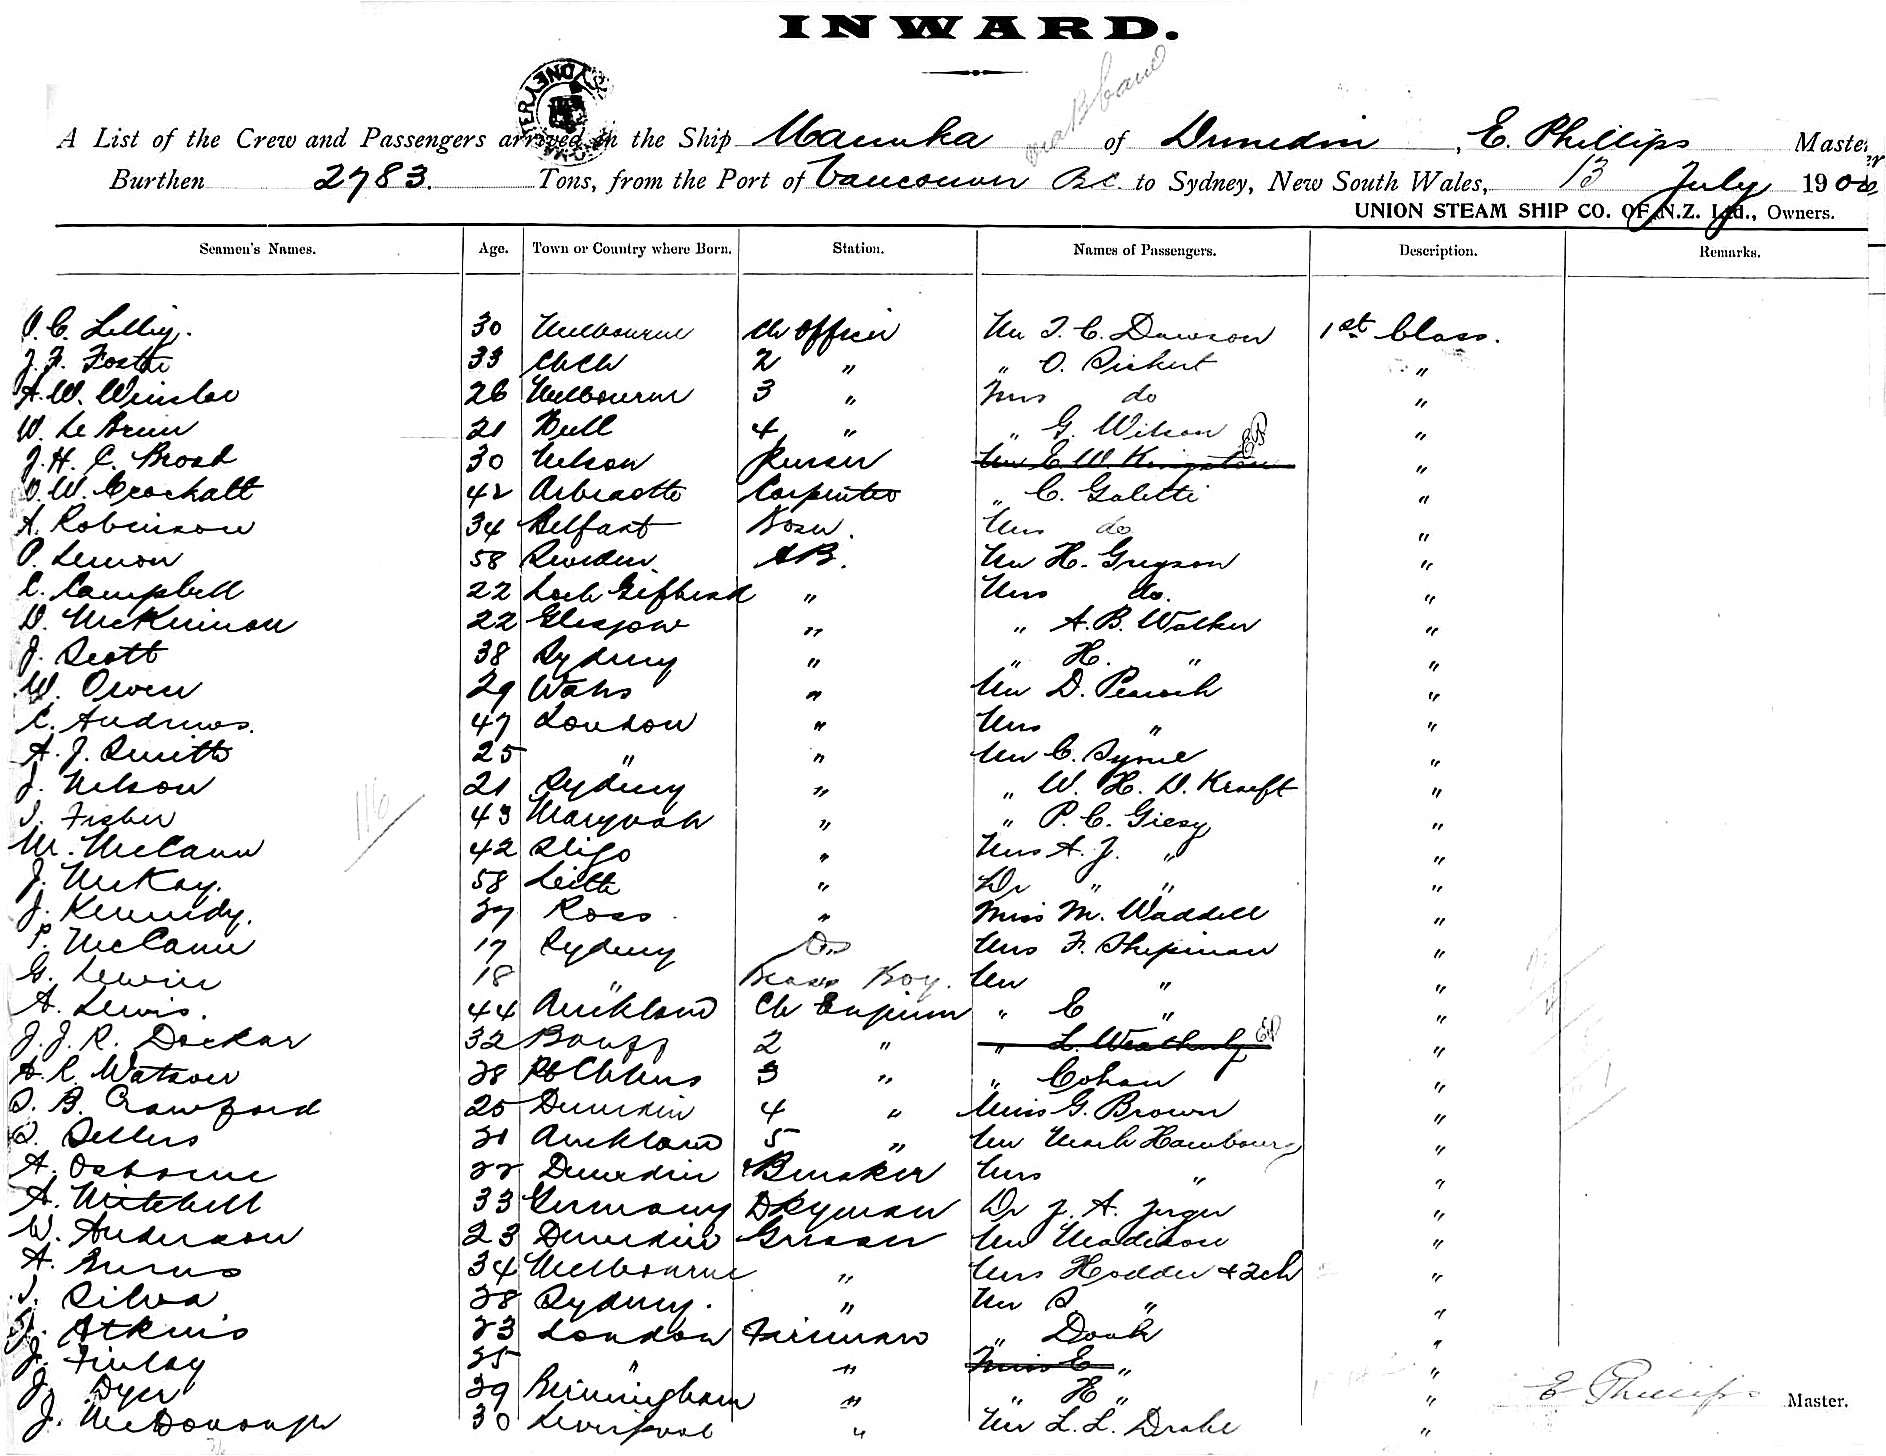 INWARD.
via B'bane
A List of the Crew and Passengers arrived in the Ship Manuka of Dunedin, E. Phillips Master
Burthen 2783. Tons, from the Port of Vancouver B.C. to Sydney, New South Wales, 13 July 190
UNION STEAM SHIP CO. OF N.Z. Ltd., Owners.
Seamen's Names. Age. Town or Country where Born. Station. Names of Passengers. Description. Remarks.
30 Melbourne Ch Officer Mr T. C. Dawson 1st Class.
J. F. Foster 33 ChCh 2 " " O. Sickert "
A. W. Winslow 26 Melbourne 3 " Mrs do "
W. Le Brun 21 Hull 4 " " G. Wilson "
J. H. C. Broad 30 Nelson Purser Mr E W Kingston EP "
42 Arbroath Carpenter " C. Galetti "
A. Robinson 34 Belfast Bosn. Mrs do "
P. Lemon 58 Sweden. AB. Mr H. Gregson "
C. Campbell 22 Loch Gilphead " Mrs do. "
D. McKinnon 22 Glasgow " " A. B. Walker "
J. Scott 38 Sydney " " H. " "
W. Owen 29 Wales " Mr D. "
C. Andrews. 47 London " Mrs " "
A. J. Smith 25 " " Mr C. Syme "
J. Nelson 21 Sydney " " W. H. D. Kraeft "
116
T. Fisher 43 " " P. C. Giesy "
M. McCann 42 Sligo " Mrs A. J. " "
J. McKay. 58 Leith " Dr " " "
J. Kennedy. 37 Ross " Miss M. Waddell "
P. McCann 17 Sydney OS Mrs F. Shipman "
G. Lewin 18 " Boy. Mr " "
A. Lewis. 44 Auckland Ch Engineer " E " "
J. J. R. Dockar 32 Banff 2 " " L. Weatherly EP "
A. R. Watson 28 Pt Chlmrs 3 " " Cohan "
S. B. Crawford 25 Dunedin 4 " Miss G. Brown "
S. Sellers 31 Auckland 5 " Mr Mark Hambourg "
A. Osborne 22 Dunedin Mrs " "
A. Mitchell 33 Germany Dkyman Dr J. A. Jorger "
W. Anderson 23 Dunedin Greaser Mr Madison "
A. Burns 34 Melbourne " Mrs Hodder + 2ch "
S. Silva 28 Sydney. " Mr S " "
J. Atkins 23 London Fireman " Doak "
J. Finlay 25 " " Miss E " "
J. Dyer 39 Birmingham " " H " "
E Phillips Master.
J. McDonough 30 Liverpool " Mr L. L. Drake "